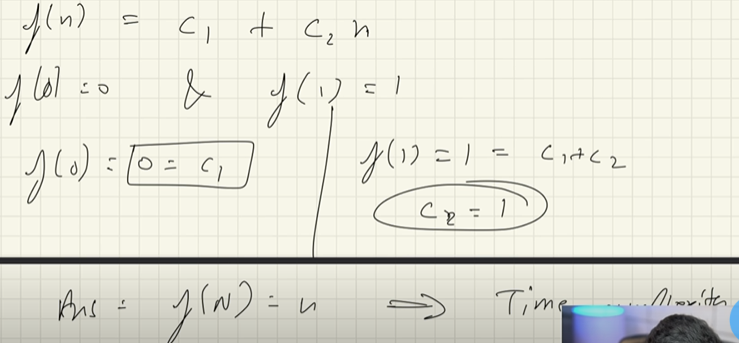 f(n) = c₁ + c₂ n
f(0) = 0 & f(1) = 1
f(0) = 0 = c₁
f(1) = 1 = c₁ + c₂
c₂ = 1
Ans = f(N) = n ⇒ Time